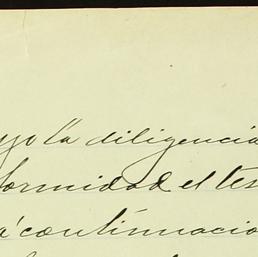 yo la diligencia
formidad el tes
á continuacio